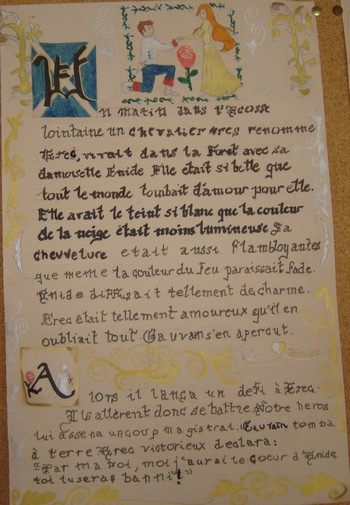 Un matin dans l'Ecosse
lointaine un chevalier très renommé
Erec, vivait dans la Foret avec sa
damoiselle Enide Elle était si belle que
tout le monde tombait d'amour pour elle.
Elle avait le teint si blanc que la couleur
de la neige était moins lumineuse. Sa
chevelure etait aussi flamboyantes
que meme la couleur du feu paraissait fade.
Enide diffusait tellement de charme.
Erec était tellement amoureux qu'il en
oubliait tout Gauvain s'en aperçut.
Alors il lança un defi à Erec.
Ils allèrent donc se battre. Notre heros
lui assena un coup magistral. Gauvain tomba
à terre Erec victorieux declara:
"Par ma foi, moi j'aurai le coeur d'Enide
toi tu seras banni!"